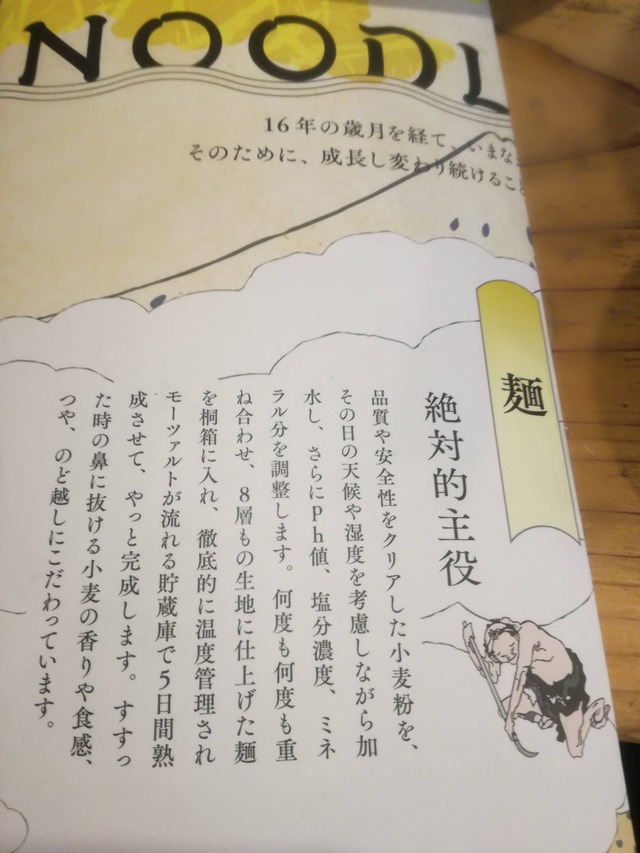 NOODL
16年の歳月を経て、いまな
そのために、成長し変わり続けるこ
麺
絶対的主役
品質や安全性をクリアした小麦粉を、
その日の天候や湿度を考慮しながら加
水し、さらにph値、塩分濃度、ミネ
ラル分を調整します。何度も何度も重
ね合わせ、8層もの生地に仕上げた麺
を桐箱に入れ、徹底的に温度管理され
モーツァルトが流れる貯蔵庫で5日間熟
成させて、やっと完成します。すすっ
た時の鼻に抜ける小麦の香りや食感、
つや、のど越しにこだわっています。